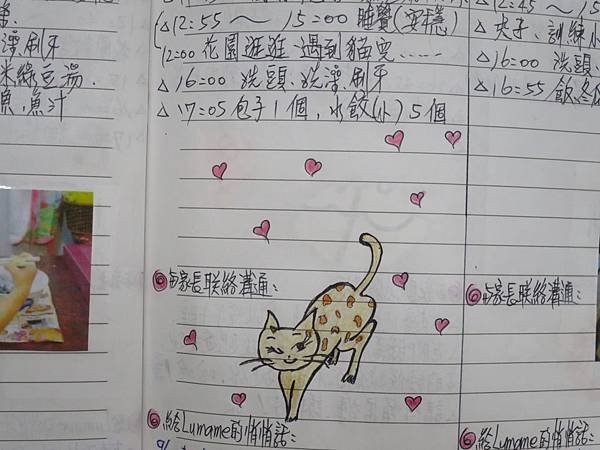 △12:55～15:00 睡覺(安穩)
12:00 花園逛逛 遇到貓兒……
△16:00 洗頭、洗澡、刷牙
△17:05 包子1個,水餃(小)5個
⑥與家長联絡溝通:
⑥給Lumame的悄悄話:
澡、刷牙
米綠豆湯.
魚,魚汁
△12:45～15
△夫子、訓練小
△16:00 洗頭、
△16:55 飯、冬
⑥與家長联絡溝通:
⑥給Lumame的悄悄話: